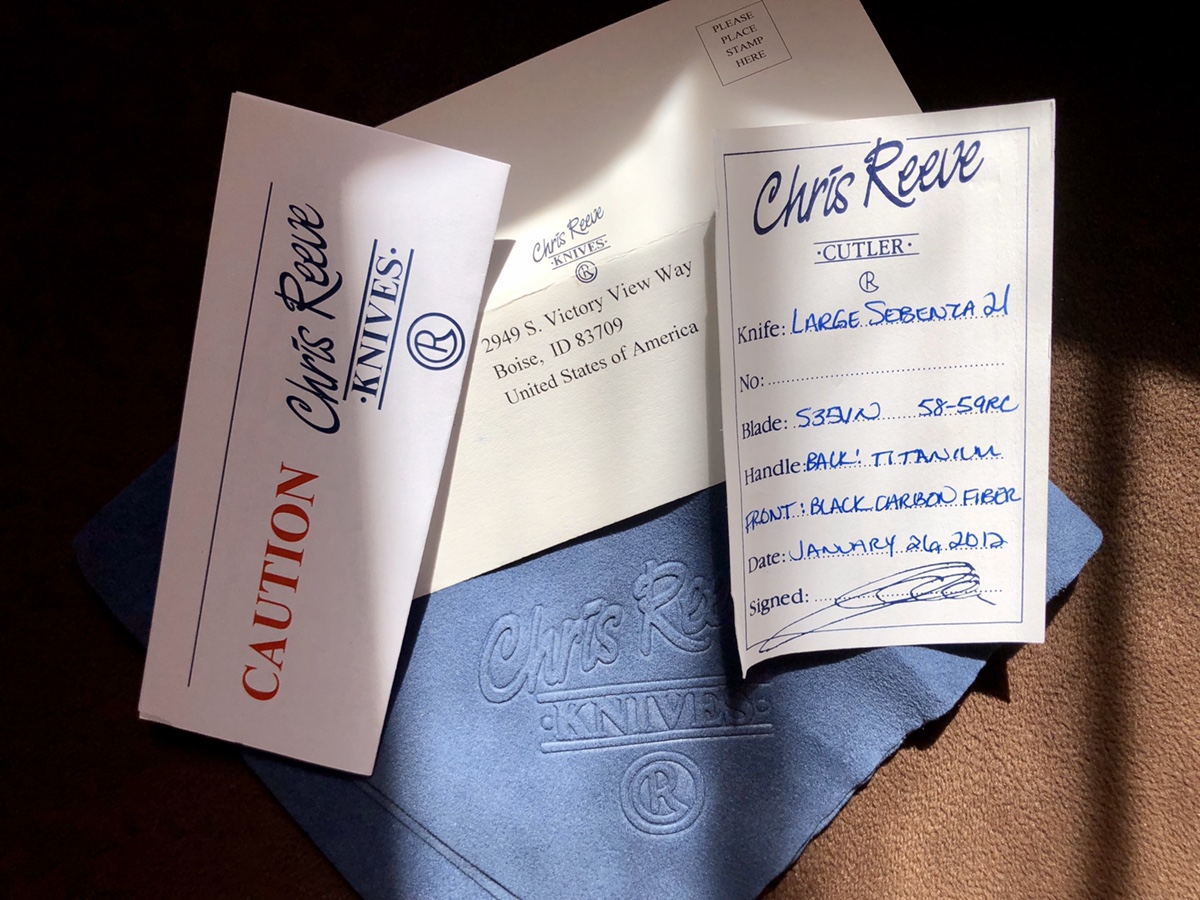 CAUTION
Chris Reeve
·KNIVES·
R
PLEASE
PLACE
STAMP
HERE
Chris Reeve
·KNIVES·
R
2949 S. Victory View Way
Boise, ID 83709
United States of America
Chris Reeve
·CUTLER·
R
Knife: LARGE SEBENZA 21
No:
Blade: S35VN 58-59RC
Handle: BACK: TITANIUM
FRONT: BLACK CARBON FIBER
Date: JANUARY 26, 2012
Signed:
Chris Ree
·KNIVES·
R